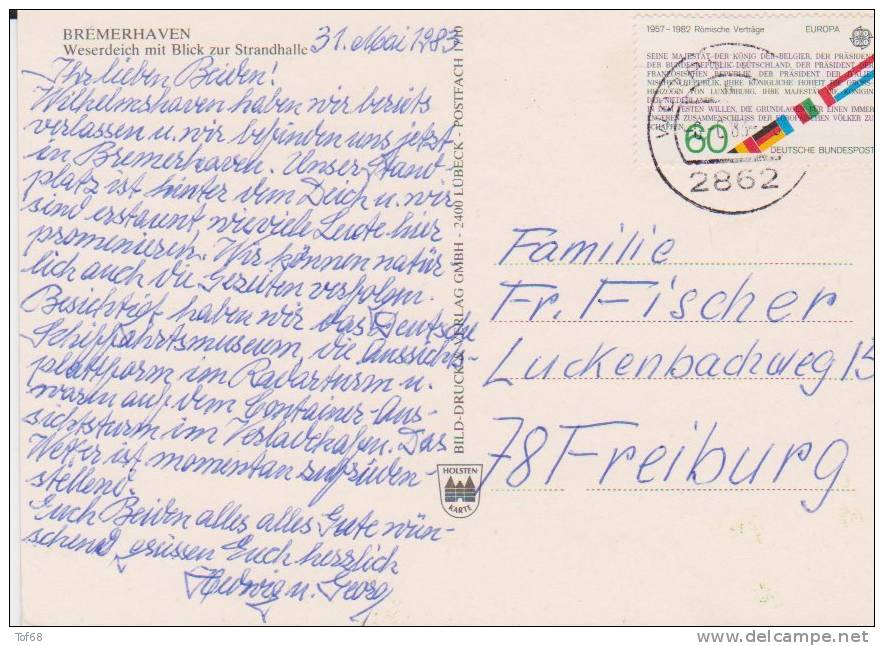 BREMERHAVEN
Weserdeich mit Blick zur Strandhalle
31. Mai 1983
Ihr lieben Beiden!
Wilhelmshaven haben wir bereits
verlassen u. wir befinden uns jetzt
in Bremerhaven. Unser Stand-
platz ist hinter dem Deich u. wir
sind erstaunt, wieviele Leute hier
promenieren. Wir können natür-
lich auch die Gezeiten verfolgen.
Besichtigt haben wir das Deutsche
Schiffahrtsmuseum, die Aussichts-
plattform im Radarturm u.
waren auf dem Container-Aus-
sichtsturm im Verladehafen. Das
Wetter ist momentan zufrieden-
stellend.
Euch Beiden alles alles Gute wün-
schend, grüssen Euch herzlich
Hedwig u. Georg
BILD-DRUCK & VERLAG GMBH - 2400 LÜBECK - POSTFACH 1910
HOLSTEN
KARTE
1957-1982 Römische Verträge EUROPA
SEINE MAJESTÄT DER KÖNIG DER BELGIER, DER PRÄSIDENT
DER BUNDESREPUBLIK DEUTSCHLAND, DER PRÄSIDENT DER
FRANZÖSISCHEN REPUBLIK, DER PRÄSIDENT DER ITALIE-
NISCHEN REPUBLIK, IHRE KÖNIGLICHE HOHEIT DIE GROSS-
HERZOGIN VON LUXEMBURG, IHRE MAJESTÄT DIE KÖNIGIN
DER NIEDERLANDE,
IN DEM FESTEN WILLEN, DIE GRUNDLAGEN FÜR EINEN IMMER
ENGEREN ZUSAMMENSCHLUSS DER EUROPÄISCHEN VÖLKER ZU
SCHAFFEN,
60
DEUTSCHE BUNDESPOST
2862
Familie
Fr. Fischer
Luckenbachweg 15
78 Freiburg
Tof68
www.delcampe.net